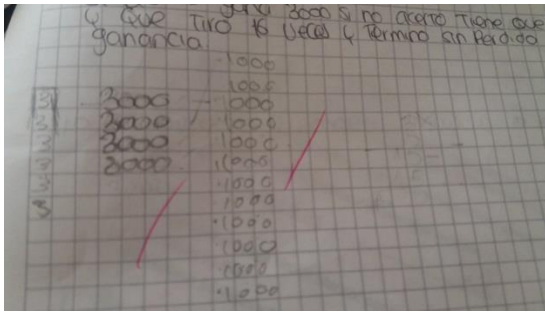 3000 si no acerto Tiene que
y que Tiro 16 veces y Termino sin Perdida
ganancia
1000
1000
3000 - 1000
3000 1000
3000 1000
3000 1000
1000
1000
1000
1000
1000
1000